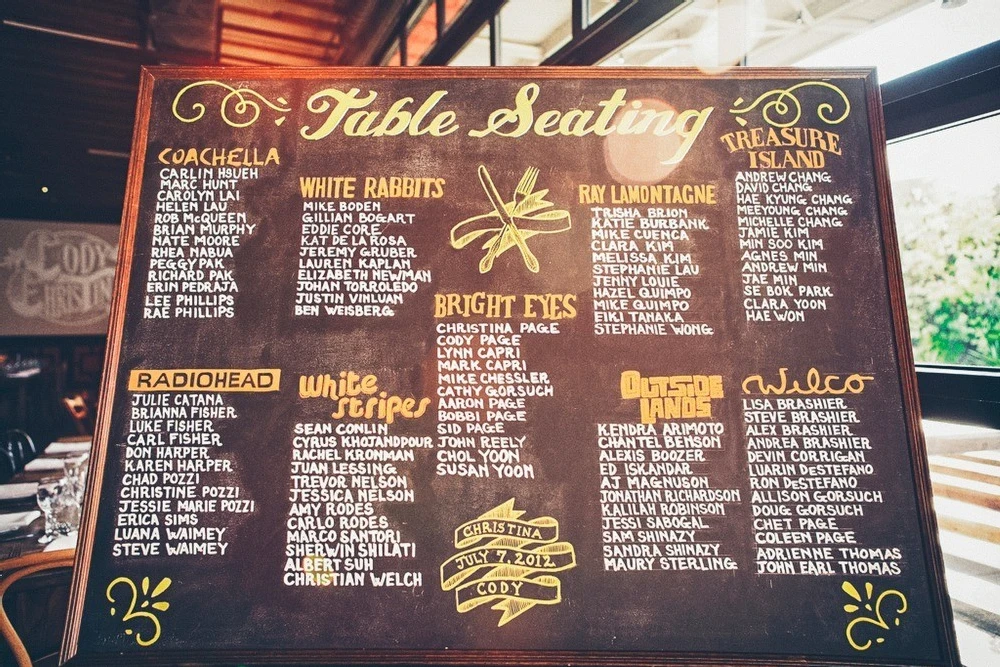 Table Seating
COACHELLA
CARLIN HSUEH
MARC HUNT
CAROLYN LAI
HELEN LAU
ROB McQUEEN
BRIAN MURPHY
NATE MOORE
RHEA NABUA
PEGGY PAK
RICHARD PAK
ERIN PEDRAJA
LEE PHILLIPS
RAE PHILLIPS
WHITE RABBITS
MIKE BODEN
GILLIAN BOGART
EDDIE CORE
KAT DE LA ROSA
JEREMY GRUBER
LAUREN KAPLAN
ELIZABETH NEWMAN
JOHAN TORROLEDO
JUSTIN VINLUAN
BEN WEISBERG
BRIGHT EYES
CHRISTINA PAGE
CODY PAGE
LYNN CAPRI
MARK CAPRI
MIKE CHESSLER
CATHY GORSUCH
AARON PAGE
BOBBI PAGE
SID PAGE
JOHN REELY
CHOL YOON
SUSAN YOON
RAY LAMONTAGNE
TRISHA BRION
KATIE BURBANK
MIKE CUENCA
CLARA KIM
MELISSA KIM
STEPHANIE LAU
JENNY LOUIE
HAZEL QUIMPO
MIKE QUIMPO
EIKI TANAKA
STEPHANIE WONG
TREASURE
ISLAND
ANDREW CHANG
DAVID CHANG
HAE KYUNG CHANG
MEEYOUNG CHANG
MICHELLE CHANG
JAMIE KIM
MIN SOO KIM
AGNES MIN
ANDREW MIN
JAE MIN
SE BOK PARK
CLARA YOON
HAE WON
RADIOHEAD
JULIE CATANA
BRIANNA FISHER
LUKE FISHER
CARL FISHER
DON HARPER
KAREN HARPER
CHAD POZZI
CHRISTINE POZZI
JESSIE MARIE POZZI
ERICA SIMS
LUANA WAIMEY
STEVE WAIMEY
White
Stripes
SEAN CONLIN
CYRUS KHOJANDPOUR
RACHEL KRONMAN
JUAN LESSING
TREVOR NELSON
JESSICA NELSON
AMY RODES
CARLO RODES
MARCO SANTORI
SHERWIN SHILATI
ALBERT SUH
CHRISTIAN WELCH
CHRISTINA
JULY 7, 2012
CODY
OUTSIDE
LANDS
KENDRA ARIMOTO
CHANTEL BENSON
ALEXIS BOOZER
ED ISKANDAR
AJ MAGNUSON
JONATHAN RICHARDSON
KALILAH ROBINSON
JESSI SABOGAL
SAM SHINAZY
SANDRA SHINAZY
MAURY STERLING
Wilco
LISA BRASHIER
STEVE BRASHIER
ALEX BRASHIER
ANDREA BRASHIER
DEVIN CORRIGAN
LUARIN DeSTEFANO
RON DeSTEFANO
ALLISON GORSUCH
DOUG GORSUCH
CHET PAGE
COLEEN PAGE
ADRIENNE THOMAS
JOHN EARL THOMAS
CODY